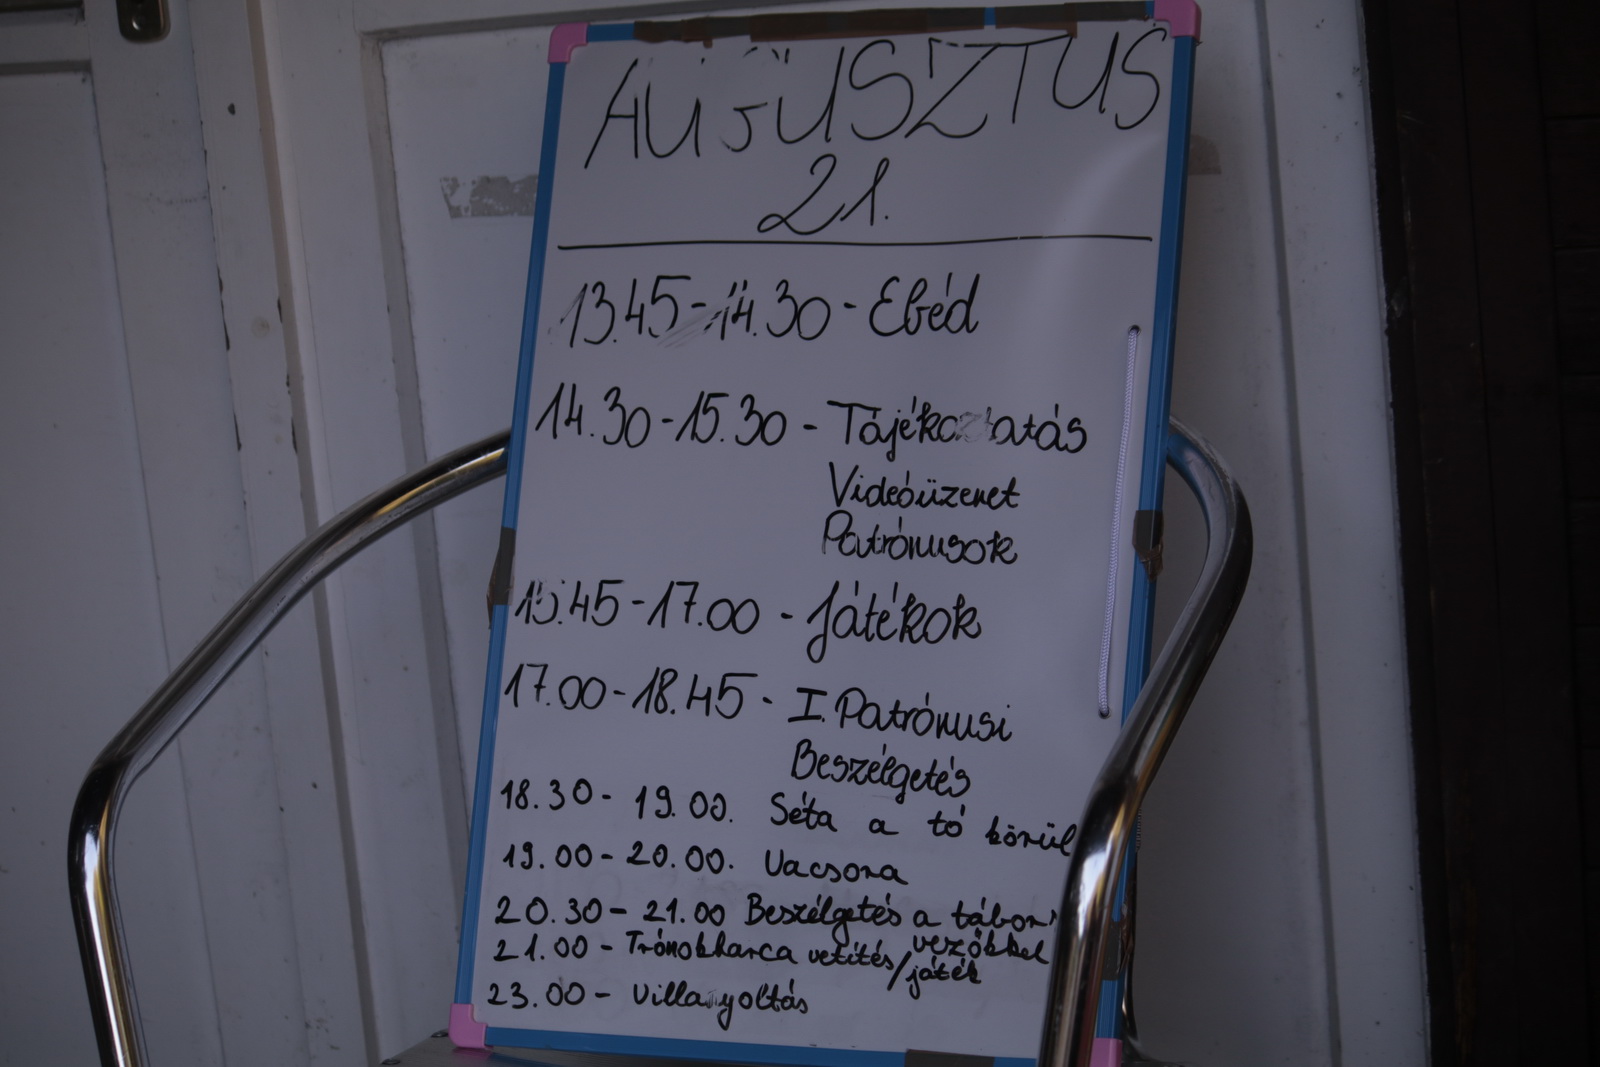 AUGUSZTUS
21.
13.45-14.30 - Ebéd
14.30-15.30 - Tájékoztatás
Videóüzenet
Patrónusok
15.45-17.00 - Játékok
17.00-18.45 - I. Patrónusi
Beszélgetés
18.30- 19.00. Séta a tó körül
19.00-20.00. Vacsora
20.30-21.00 Beszélgetés a tábor
vezőkkel
21.00 - Trónokharca vetítés/játék
23.00 - Villanyoltás